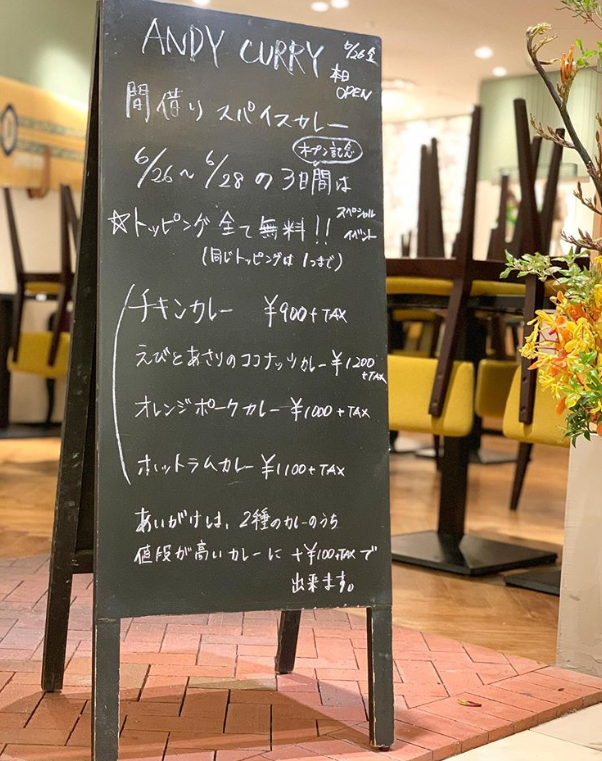 ANDY CURRY
6/26金
本日
OPEN
間借り スパイスカレー
オープン記念
6/26〜6/28の3日間は
☆トッピング全て無料!!
スペシャル
イベント
(同じトッピングは1つまで)
チキンカレー ¥900+TAX
えびとあさりのココナッツカレー¥1200
+TAX
オレンジポークカレー¥1000+TAX
ホットラムカレー¥1100+TAX
あいがけは、2種のカレーのうち
値段が高いカレーに +¥100+TAXで
出来ます。